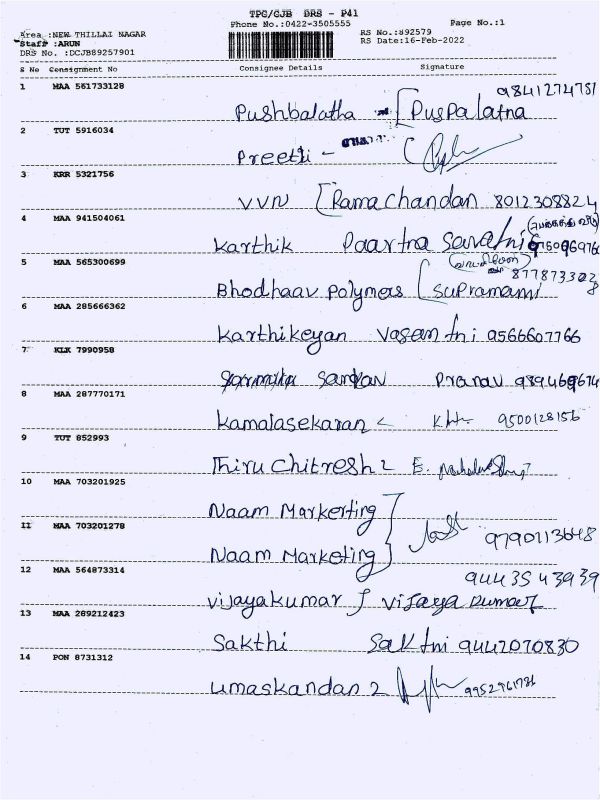 TPC/CJB DRS - P41
Phone No.:0422-3505555 Page No.:1
Area :NEW THILLAI NAGAR RS No.:892579
Staff :ARUN RS Date:16-Feb-2022
DRS No. :DCJB89257901
S No Consignment No Consignee Details Signature
1 MAA 561733128 9841274751
Pushbalatha - [Puspalatna
2 TUT 5916034
Preethi -
3 KRR 5321756
VVN [Ramachandan 8012308824
4 MAA 941504061
Karthik Paartna Saratni
5 MAA 565300699
Bhodhaav Polymers [Supramami
6 MAA 285666362
Karthikeyan Vasantni 9566607766
7 KLK 7990958
Sandan Pranav
8 MAA 287770171
Kamalasekaran 9500128156
9 TUT 852993
Thiru Chitresh
10 MAA 703201925
Naam Markerting
11 MAA 703201278 9790113648
Naam Marketing
12 MAA 564873314 9443543939
Vijayakumar Vijaya Kumar
13 MAA 289212423
Sakthi Saktni 9442070830
14 PON 8731312
Umaskandan